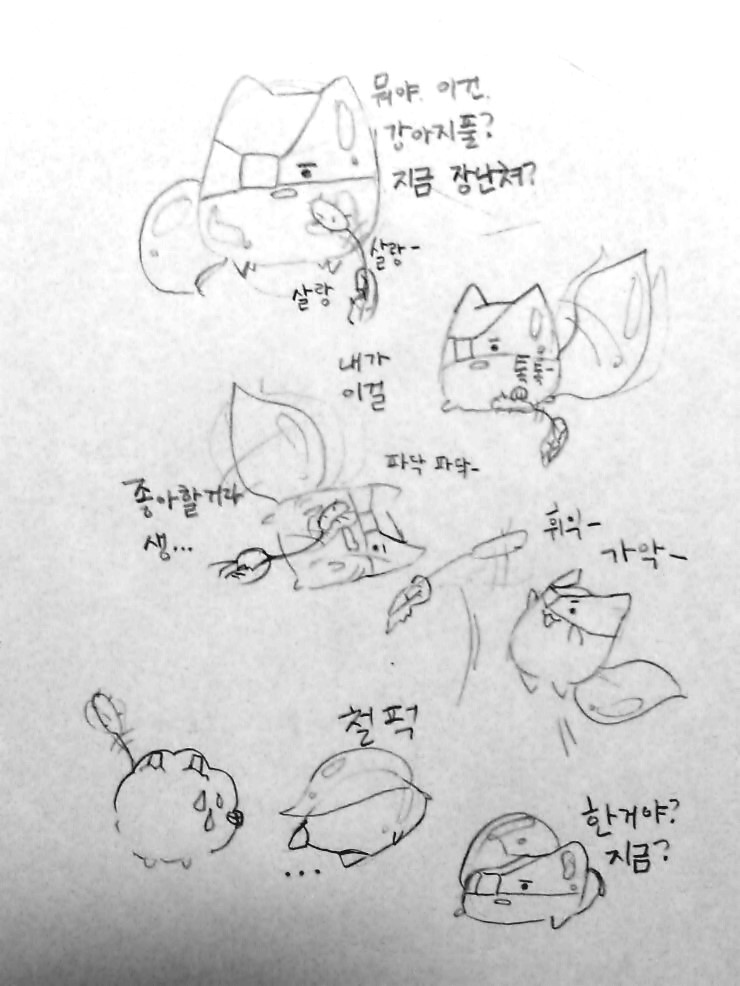 뭐야. 이건.
강아지풀?
지금 장난쳐?
살랑-
살랑
내가
이걸
톡톡-
파닥 파닥-
좋아할거라
생...
휘익-
가악-
철퍽
...
한거야?
지금?